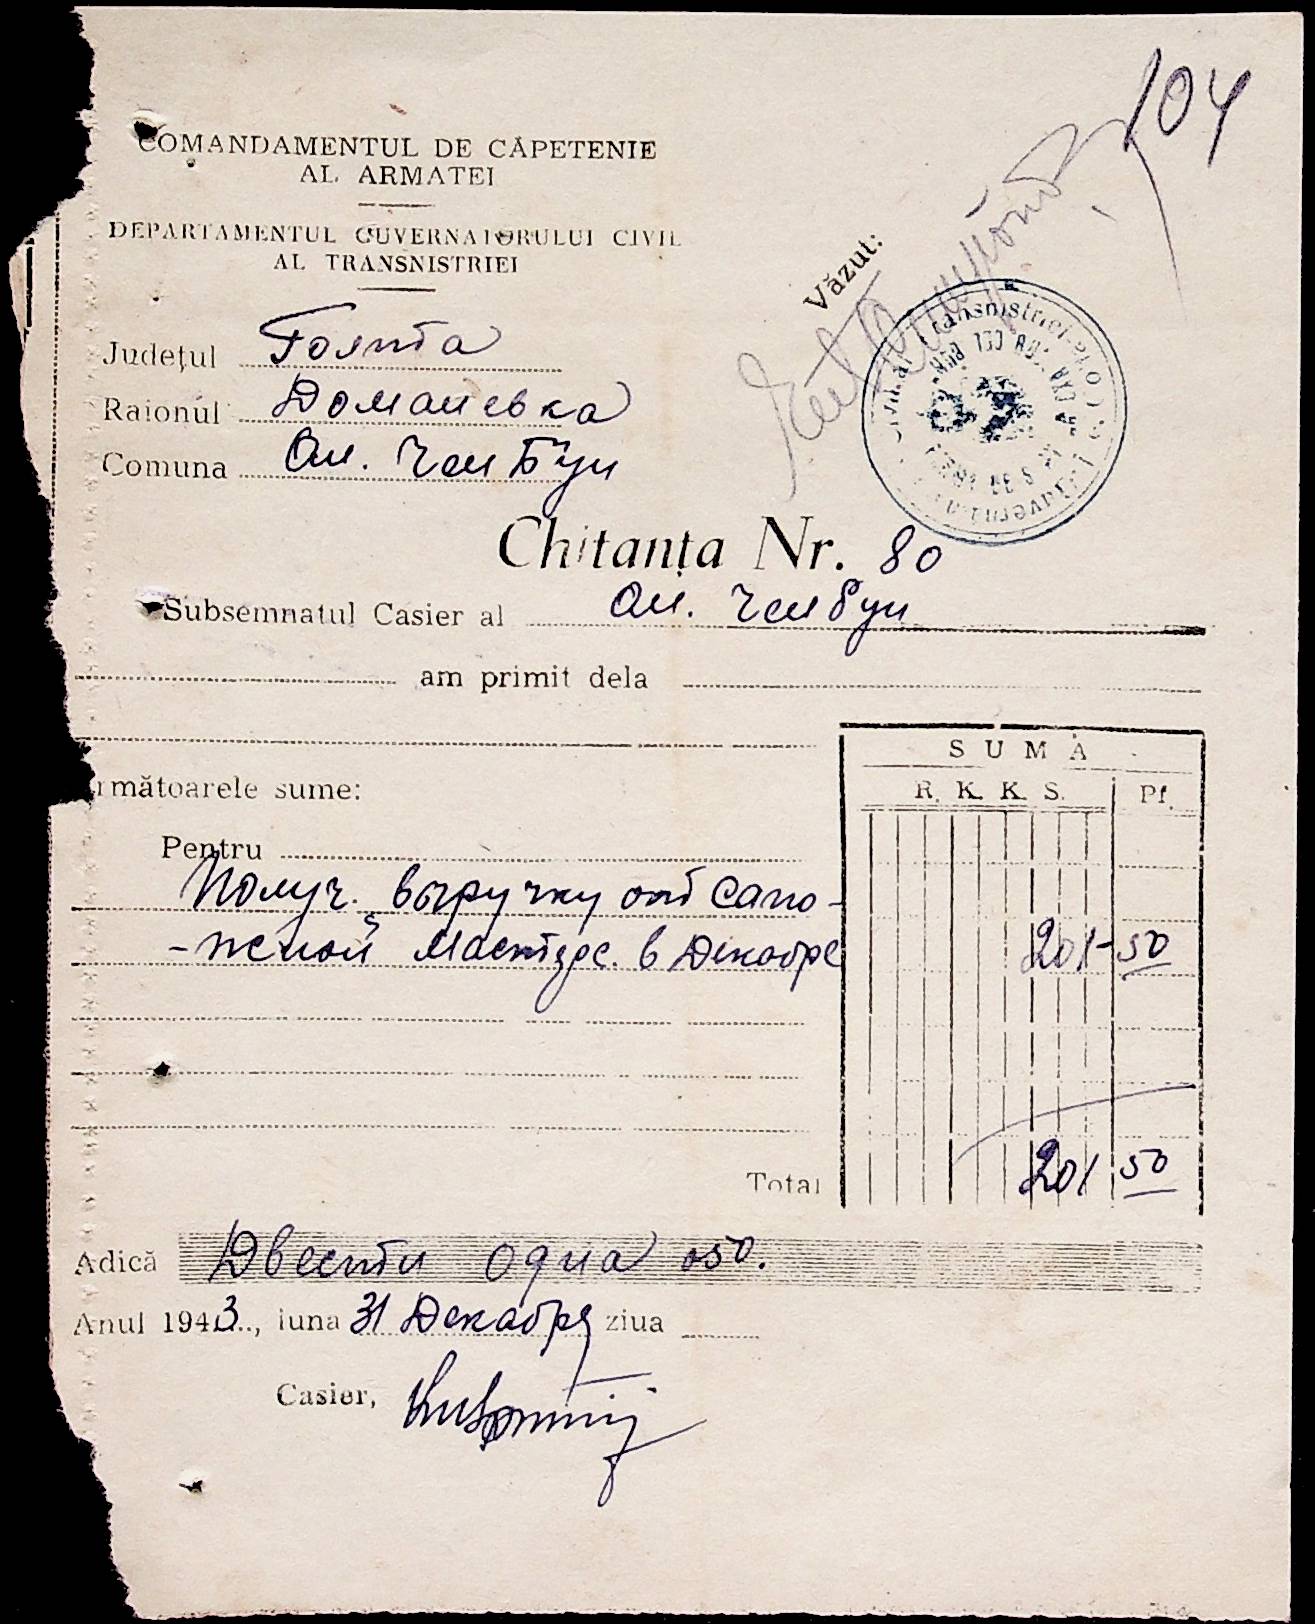 104
COMANDAMENTUL DE CĂPETENIE
AL ARMATEI
DEPARTAMENTUL GUVERNATORULUI CIVIL
AL TRANSNISTRIEI
Văzut:
Județul Голта
Raionul Доманевка
Comuna Ак. Чембун
Chitanța Nr. 80
Subsemnatul Casier al Ак. Чембун
am primit dela
rmătoarele sume:
SUMA
R. K. K. S. Pf.
Pentru
Получ. выручку от сапо-
-жной мастерс. в Декабре 201-50
Total 201 50
Adică Двести одна 050.
Anul 1943, luna 31 Декабря ziua
Casier,